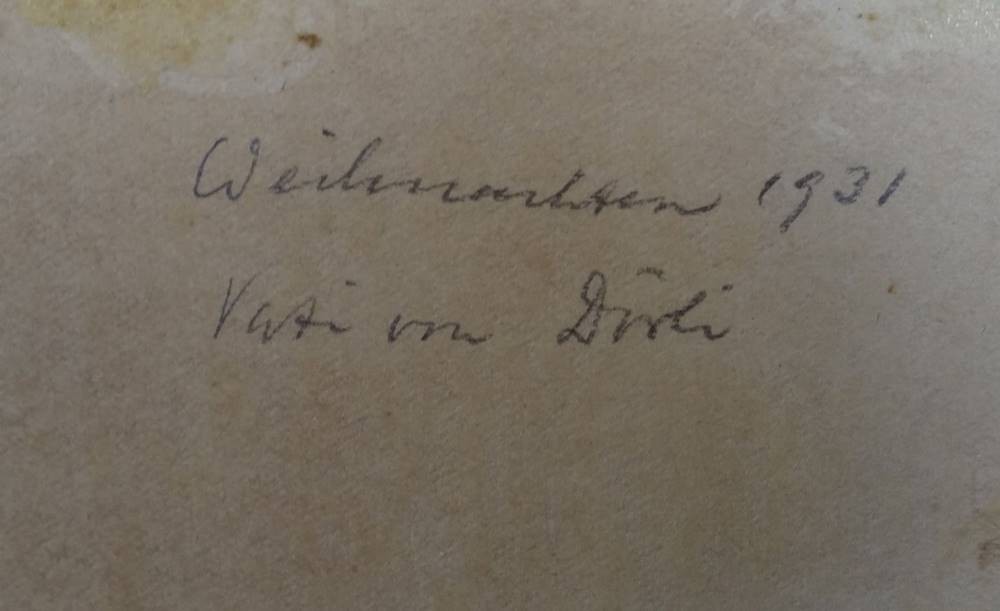 Weihnachten 1931
Vati von Dörli